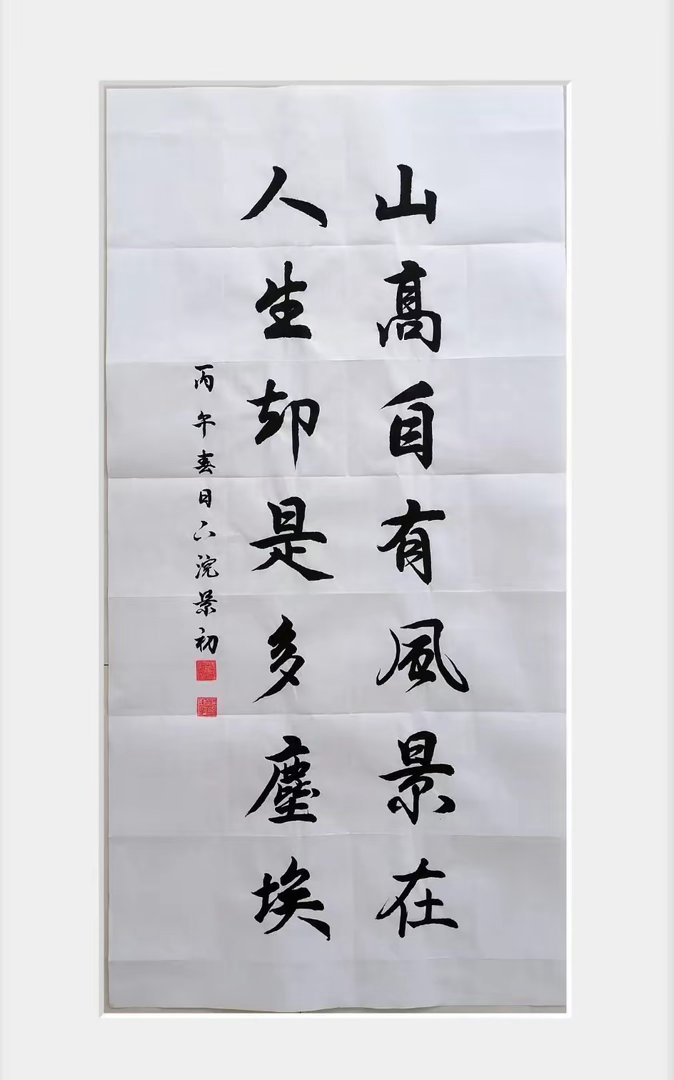 山高自有風景在
人生却是多塵埃
丙午春日六浣景初